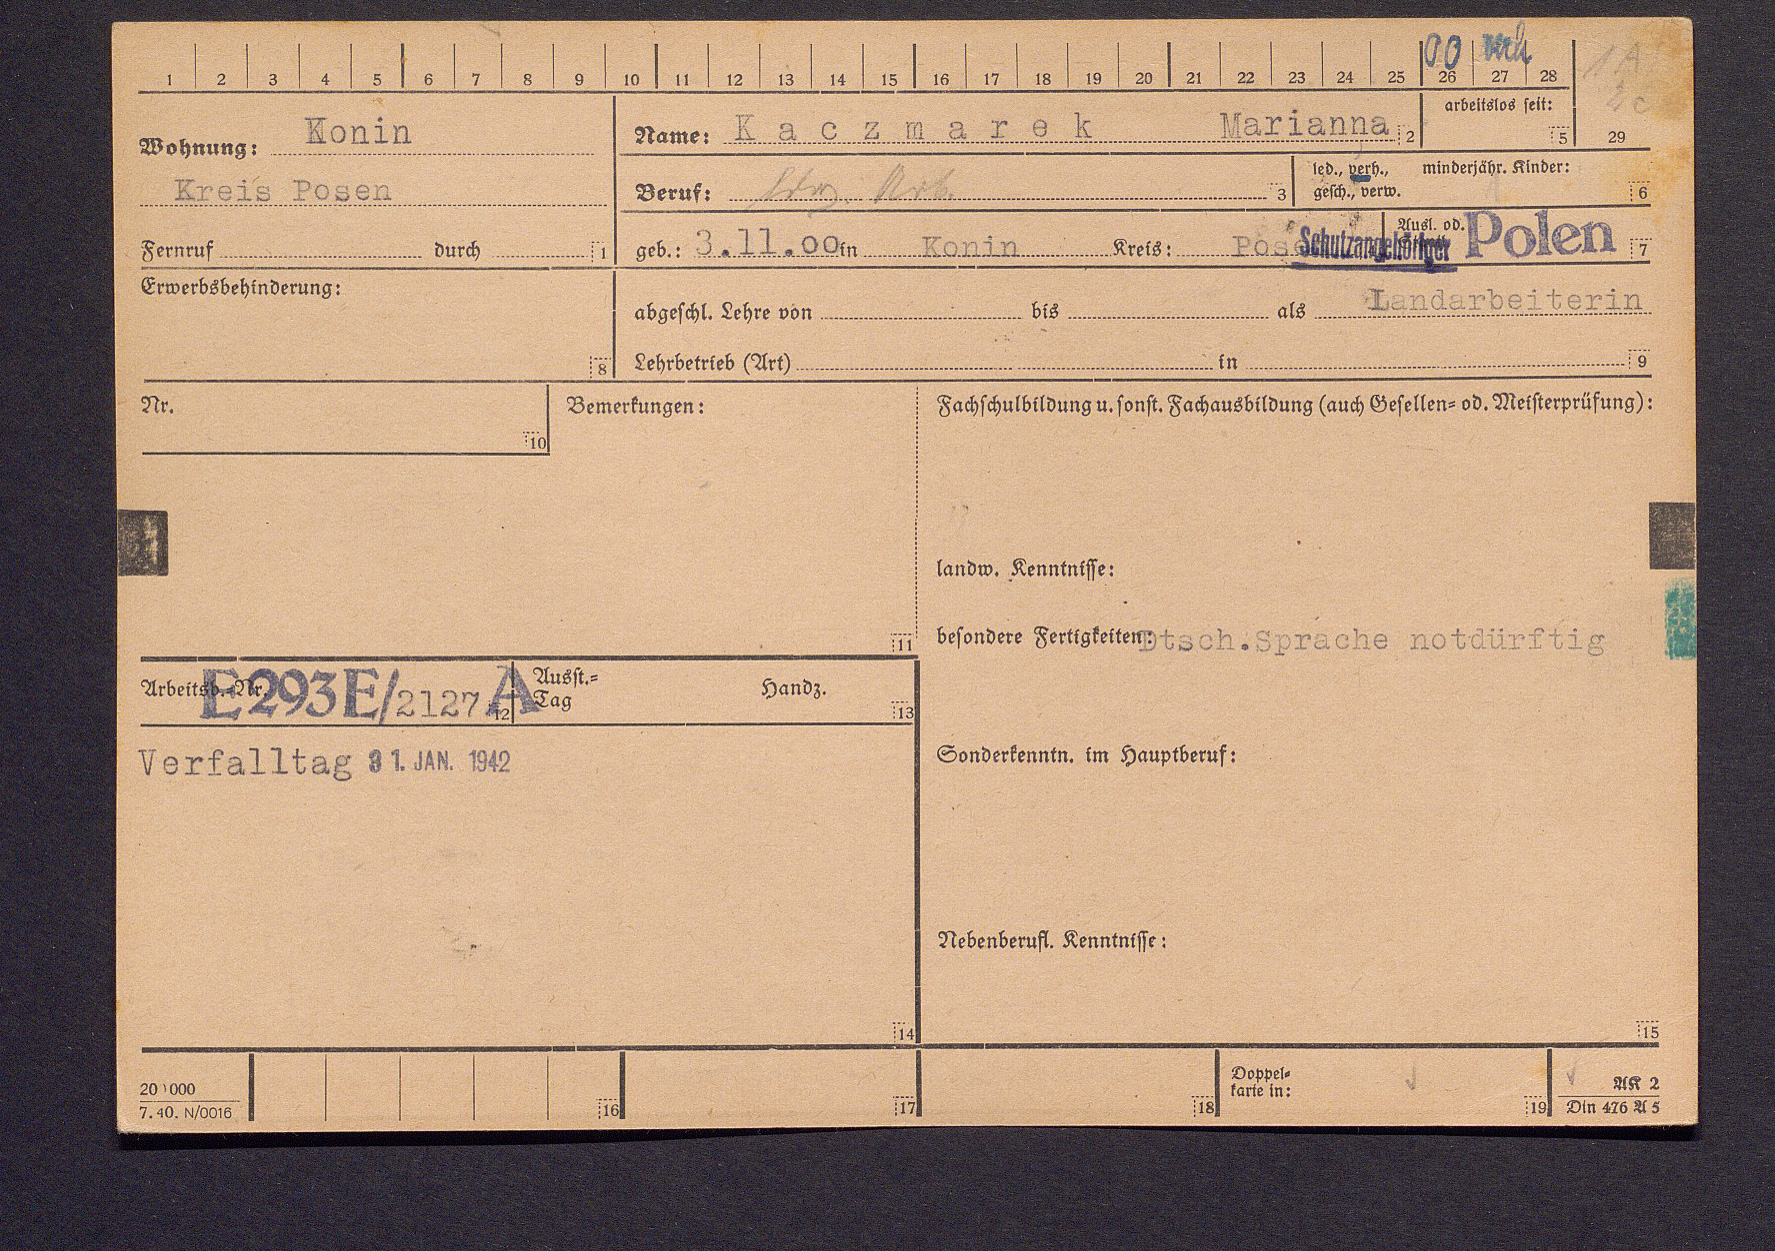 1 2 3 4 5 6 7 8 9 10 11 12 13 14 15 16 17 18 19 20 21 22 23 24 25 26 27 28
00 verh
1A
2c
29
Wohnung: Konin
Kreis Posen
Fernruf durch 1
Name: Kaczmarek Marianna 2
arbeitslos seit: 5
Beruf: Ldw. Arb. 3
led., verh., gesch., verw.
minderjähr. Kinder: 6
geb.: 3.11.00 in Konin Kreis: Pose
Schutzangehöriger
Ausl. od. Polen 7
Erwerbsbehinderung: 8
abgeschl. Lehre von bis als Landarbeiterin
Lehrbetrieb (Art) in 9
Nr. 10
Bemerkungen: 11
Fachschulbildung u. sonst. Fachausbildung (auch Gesellen- od. Meisterprüfung):
landw. Kenntnisse:
besondere Fertigkeiten: Dtsch.Sprache notdürftig
Arbeitsb.-Nr. E293E/2127 A 12
Ausst.-Tag Handz. 13
Verfalltag 31. JAN. 1942
14
Sonderkenntn. im Hauptberuf:
Nebenberufl. Kenntnisse:
15
20 000
7. 40. N/0016
16
17
18
Doppel-
karte in: 19
AK 2
Din 476 A 5